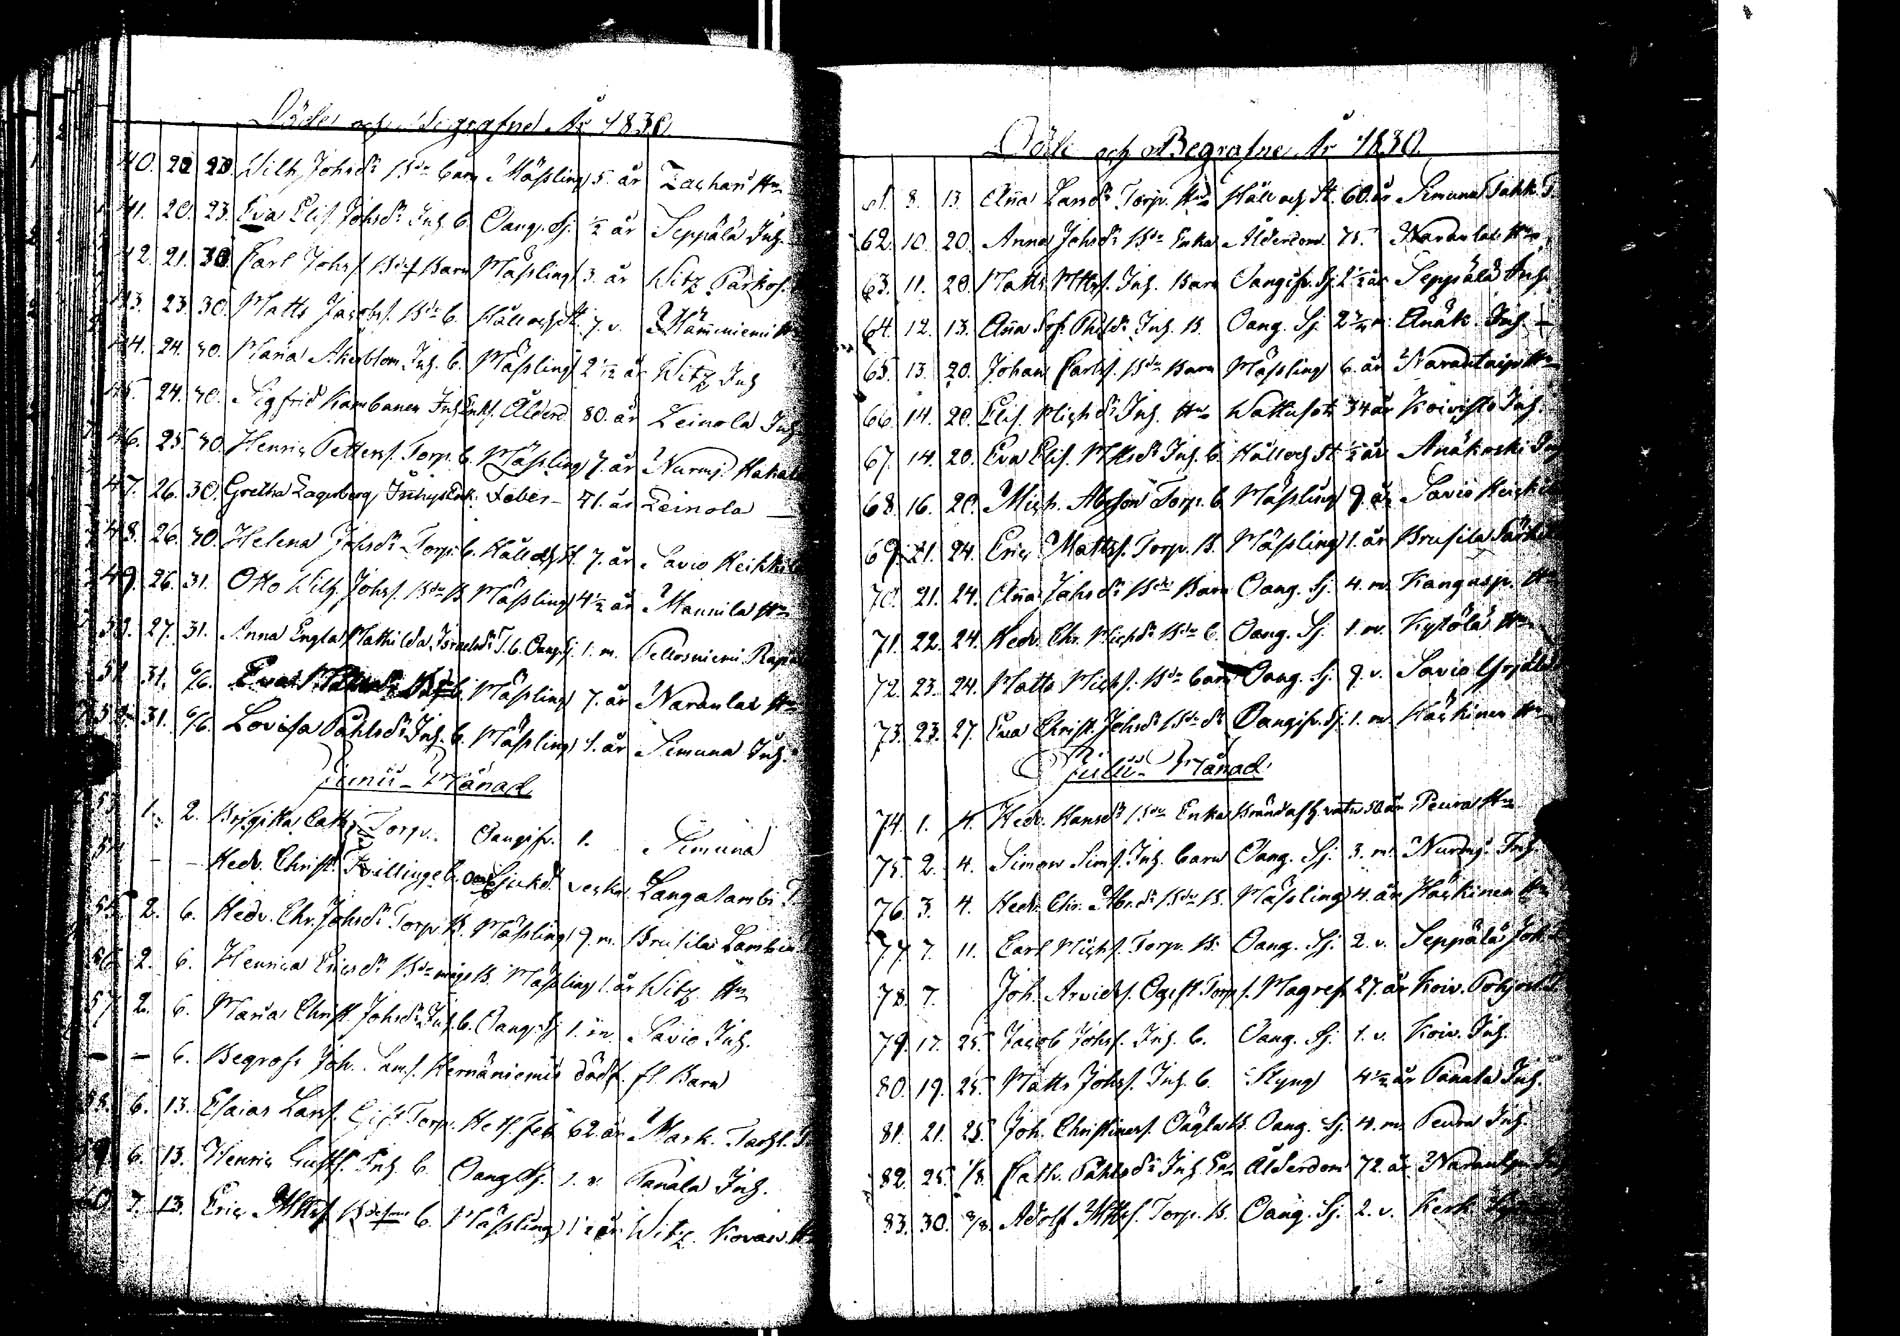 Döde och Begrafne År 1830
40. 20 23. Wilh. Johsdr Bde barn Mäßling 5. år Zachari Hn
41. 20. 23. Eva Elis. Johsdr Inh. b. Oang. Sj. ½ år Seppälä Inh.
42. 21. 30 Carl Johss. Bds Barn Mäßling 3. år Witz Pärkof.
43. 23. 30. Matts Jacobs. Bde b. Håll och St. 7. v. Hämeniemi Hn
44. 24. 30. Maria Åkerblom Inh. b. Mäßling 2 ½ år Witz Inh
45. 24. 30. Sigfrid Kambanen Inh. Enkl. Ålderd. 80. år Leinola Inh
46. 25 30. Henric Petters. Torp. b. Mäßling 7. år Nurmi.
47. 26. 30. Gretha Lagerberg Inhys Enk. Feber 71. år Leinola —
48. 26. 30. Helena Johsdr Torp. b. Håll och St 7. år Savio Heikkilä
49. 26. 31. Otto Wilh Johss. Bde B. Mäßling 4 ½ år Mannila Hn
50. 27. 31. Anna Engla Mathilda Israelsdr T. b. Oang. Sj. 1. m. Pellosniemi
51 31. 6/6. Eva b. Mäßling 7. år Naranlax Hn
52. 31. 6/6. Lovisa Påhlsdr Inh. b. Mäßling 1. år Simuna Inh.
Junii - Månad
53. 1. 2. Birgitta Cath Torp. Oangifv. 1. Simuna
54. — — Hedv. Christ. Tvillinge b. Oang Sjukd. vecka Langalambi T.
55. 2. 6. Hedv. Chr. Johsdr Torp. B. Mäßling 9. m. Brusila
56. 2. 6. Henrica Ericsdr Bde B. Mäßling 1. år Witz. Hn
57 2. 6. Maria Christ. Johsdr Inh. b. Oang. Sj 1. m. Savio Inh.
— — 6. Begrofs Joh. Sams. Hernäniemis dödf. fl. Barn
58. 6. 13. Esaias Larss. Gift Torp. Het Feb 62. år Mark.
59. 6. 13. Henric Gustfs. Inh. b. Oang Sj. 1. v. Panala Inh.
60. 7. 13. Eric Mtts. b. Mäßling 1 ½ år Witz. Kovais. Hn
Döde och Begrafne År 1830.
61. 8. 13. Anna Larsdr Torp. Hu Håll och St. 60. år Simuna Takk. T.
62. 10. 20. Anna Johsdr Bde Enka Ålderdom. 75. Naranlax Hn
63. 11. 20. Matts Mtts. Inh. Barn Oangifv. Sj. 2 ½ år Seppälä Inh.
64. 12. 13. Anna Sof. Inh. B. Oang. Sj. 2 m. Anäk. Inh —
65. 13. 20. Johan Carls. Bde Barn Mäßling 6. år Narantaip. Hn
66. 14. 20. Elis. Michsdr Inh. Hu Wattusot 34 år Koivisto Inh.
67. 14. 20. Eva Elis. Mttsdr Inh. b. Håll och St. ½ år Anäkoski Inh
68 16. 20. Mich. Abrson Torp. b. Mäßling 9. år Savio Heickil
69. 21. 24. Eric Matts. Torp. B. Mäßling 1. år Brusila
70. 21. 24. Anna Johsdr Bde Barn Oang. Sj. 4. m. Kangasp. Hn
71. 22. 24. Hedv. Chr. Michsdr Bde b. Oang. Sj. 1. m. Kytölä Hn
72. 23. 24. Matts Michs. Bde barn Oang. Sj. 9. v. Savio
73. 23. 27. Eva Christ. Johsdr Bde dr Oangifv. Sj. 1. m. Häckinen Hn
Julii - Månad
74. 1. 4. Hedv. Hansdr Bde Enka vatn 50. år Peura Hn
75. 2. 4. Simon Sims. Inh. barn Oang. Sj. 3. m. Nurmi. Inh.
76. 3. 4. Hedv. Chr. Abr.dr Bde B. Mäßling 4. år Häckinen Hn
77 7. 11. Carl Michs. Torp. B. Oang. Sj. 2. v. Seppälä
78. 7. Joh. Arvids. Ogift Torp s. Magref 27. år Koiv.
79. 17. 25. Jacob Johss. Inh. b. Oang. Sj. 1. v. Koiv. Inh.
80. 19. 25. Matts Johss. Inh. b. Styng 4 ½ år Panala Inh.
81. 21. 25. Joh. Christiners. Oägta B. Oang. Sj. 4. m. Peura Inh.
82. 25. 1/8. Cath. Påhlsdr Inh. En. Ålderdom 72. år
83. 30. 8/8. Adolf Mtts. Torp. B. Oang. Sj. 2. v. Kerk.